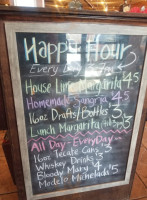 Happy Hour
Every Day
House Lime Margarita $4.5
Homemade Sangria $4
16oz Drafts/Bottles $3
Lunch Margarita $3
All Day - EveryDay
16oz Tecate Cans $3
Whiskey Drinks
Bloody Mary $4
Modelo Michelada $5